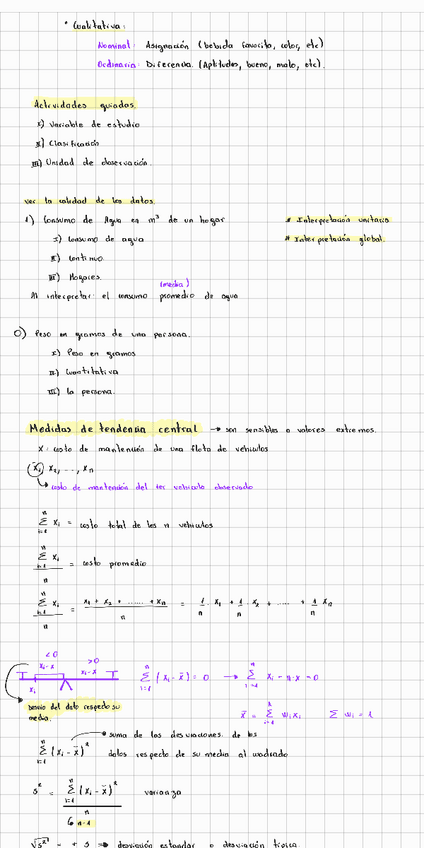 * Cualitativa:
Nominal: Asignación (bebida favorita, color, etc)
Ordinaria: Diferencia. (Aptitudes, bueno, malo, etc).
Actividades guiadas.
I) Variable de estudio
II) Clasificación
III) Unidad de observación.
ver la calidad de los datos.
1) Consumo de Agua en m³ de un hogar
* Interpretación unitaria
I) Consumo de agua
* Interpretación global.
II) Continuo.
III) Hogares.
(media)
Al interpretar: el consumo promedio de agua
O) Peso en gramos de una persona.
I) Peso en gramos
II) Cuantitativa
III) la persona.
Medidas de tendencia central → son sensibles a valores extremos.
X: costo de mantención de una flota de vehículos
x₁, x₂, ..., xₙ
↳ costo de mantención del 1er vehículo observado
∑ᵢ₌₁ⁿ xᵢ = costo total de los n vehículos
∑ᵢ₌₁ⁿ xᵢ / n = costo promedio
∑ᵢ₌₁ⁿ xᵢ / n = x₁ + x₂ + ...... + xₙ / n = 1/n · x₁ + 1/n · x₂ + ..... + 1/n xₙ
<0 >0
xᵢ-x xᵢ-x
xᵢ
∑ᵢ₌₁ⁿ (xᵢ - x̄) = 0 → ∑ᵢ₌₁ⁿ xᵢ - n·x = 0
Desvío del dato respecto su
media.
x̄ = ∑ᵢ₌₁ⁿ wᵢxᵢ ∑ wᵢ = 1
∑ᵢ₌₁ⁿ (xᵢ - x̄)² → suma de las desviaciones de los
datos respecto de su media al cuadrado
s² = ∑ᵢ₌₁ⁿ (xᵢ - x̄)² / n varianza
n-1
√s² = + s ⇒ desviación estandar o desviación típica